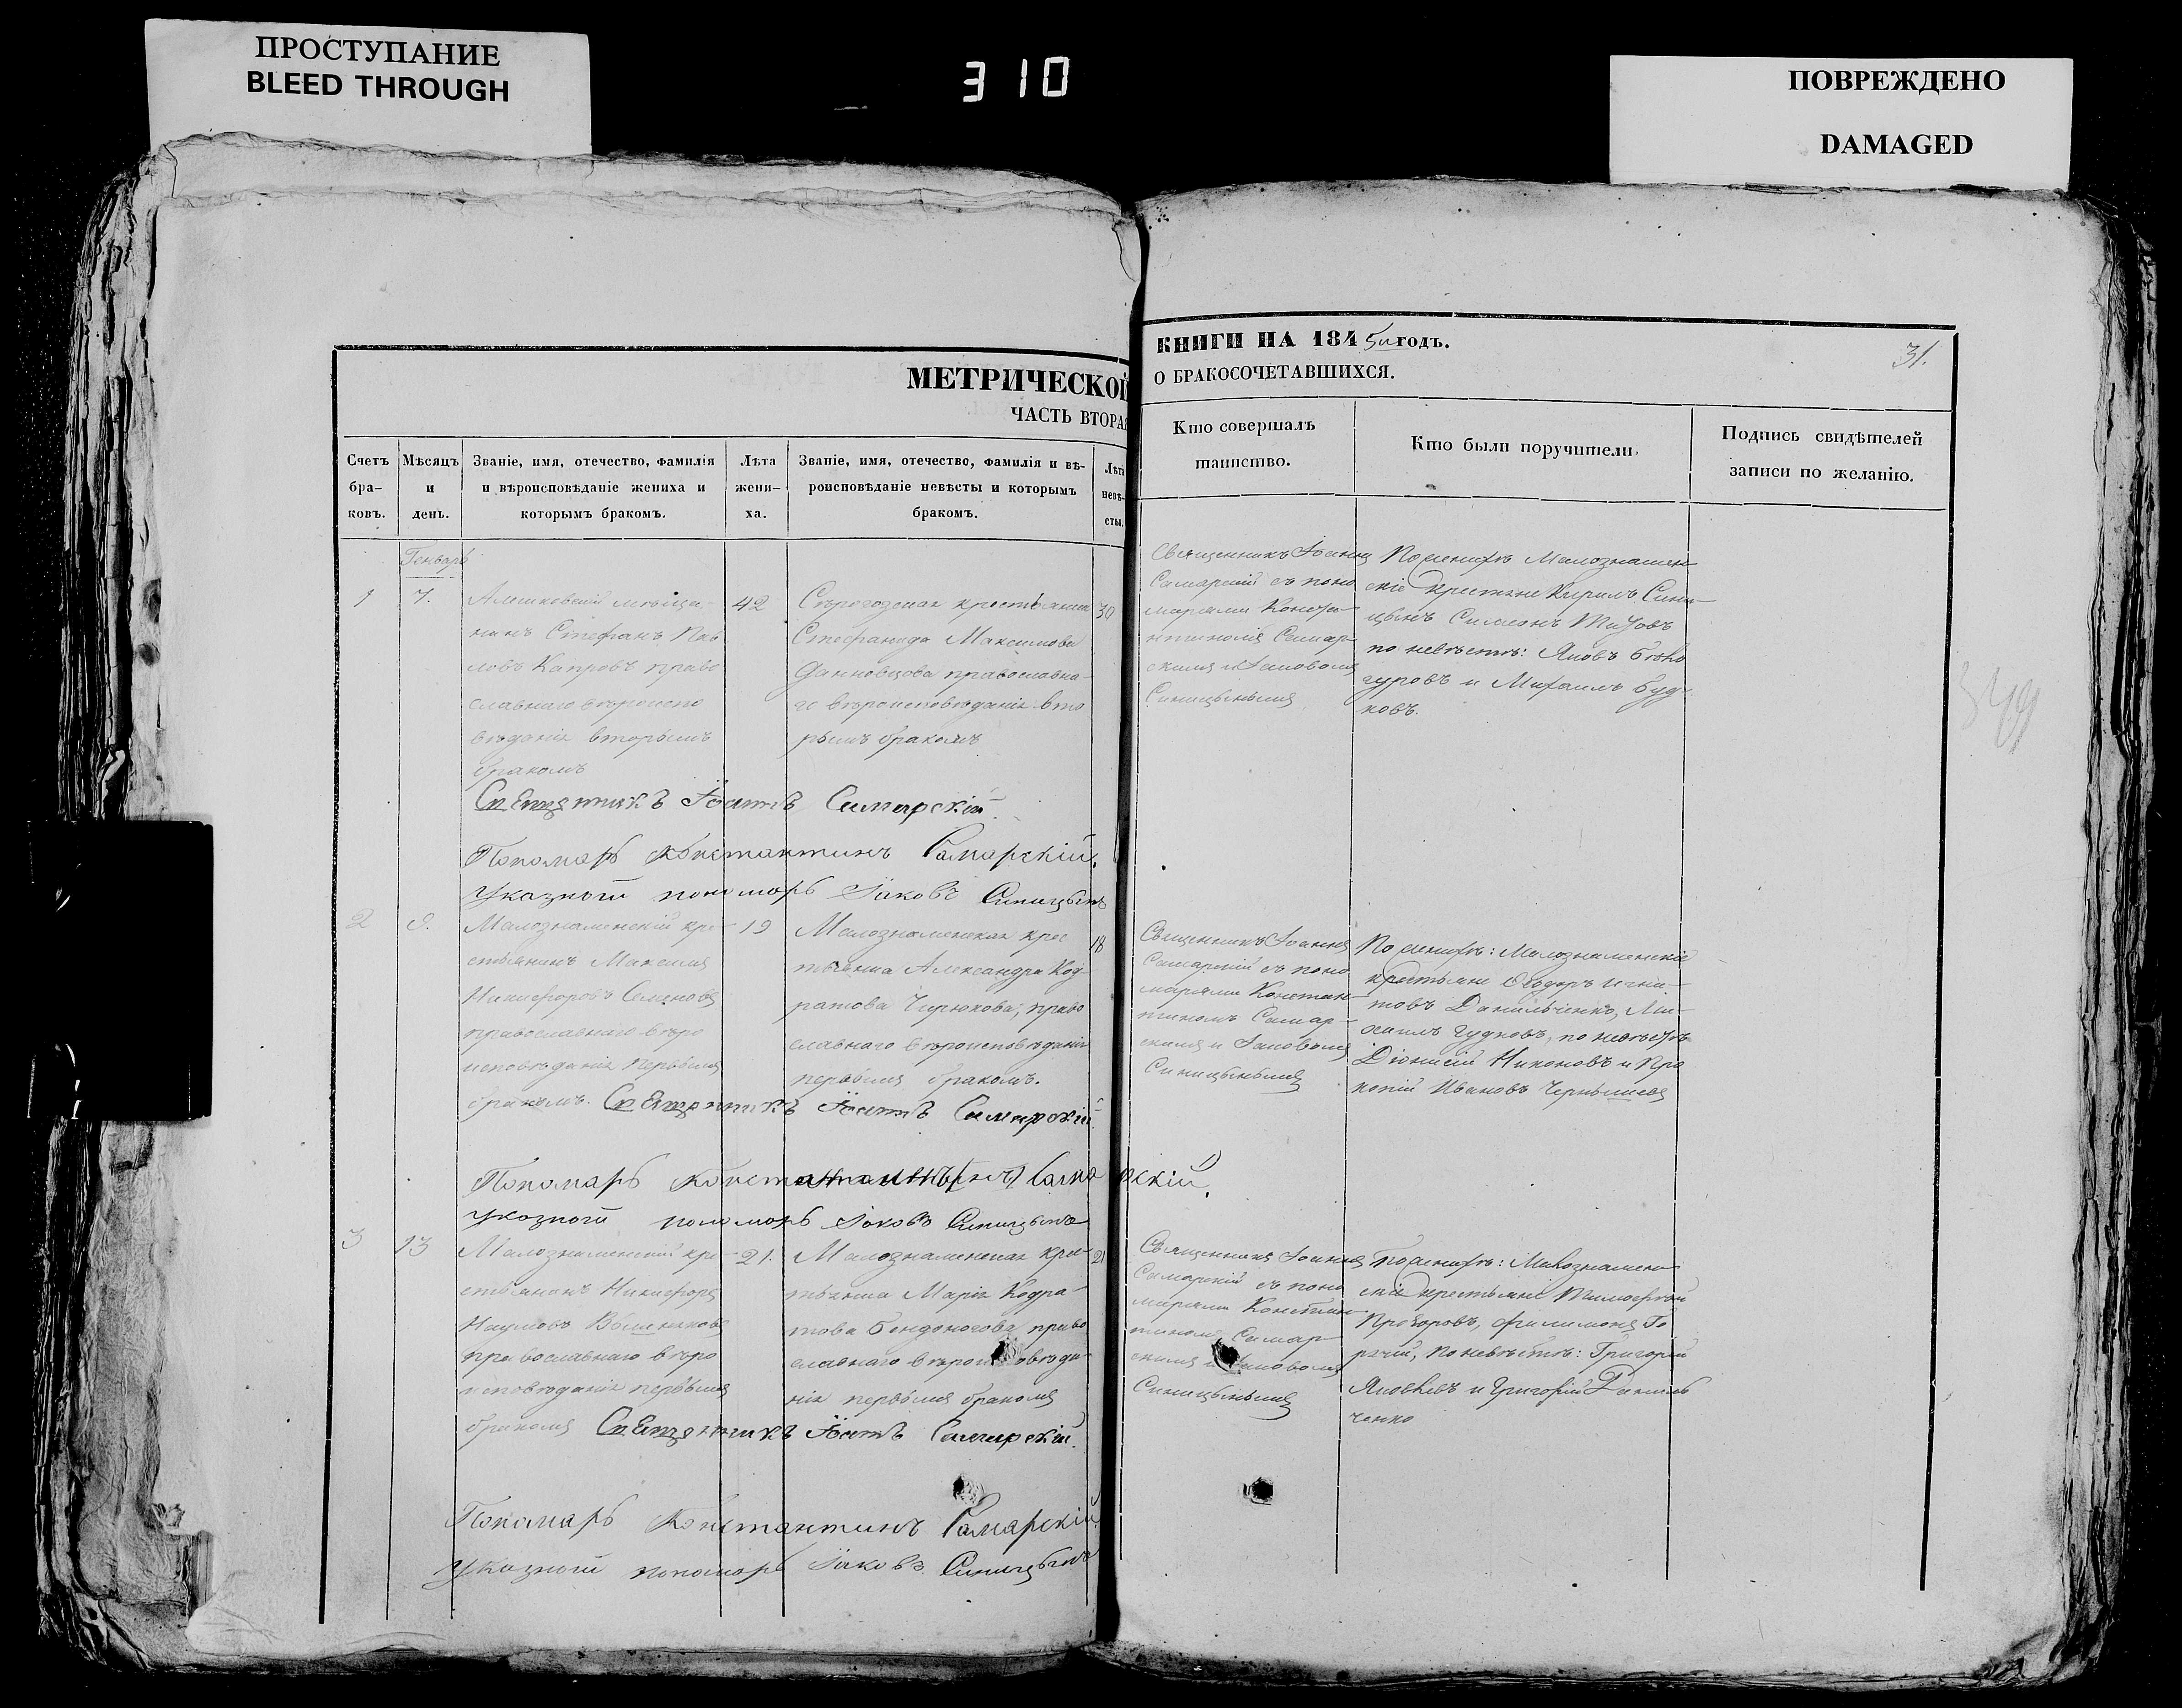 ПРОСТУПАНИЕ
BLEED THROUGH
310
ПОВРЕЖДЕНО
DAMAGED
МЕТРИЧЕСКОЙ
ЧАСТЬ ВТОРАЯ
КНИГИ НА 1845й годъ.
О БРАКОСОЧЕТАВШИХСЯ.
31.
Счетъ
бра-
ковъ.
Мѣсяцъ
и
день.
Званіе, имя, отечество, фамилія
и вѣроисповѣданіе жениха и
которымъ бракомъ.
Лѣта
жени-
ха.
Званіе, имя, отечество, фамилія и вѣ-
роисповѣданіе невѣсты и которымъ
бракомъ.
Лѣта
невѣ-
сты.
Кто совершалъ
таинство.
Кто были поручители.
Подпись свидѣтелей
записи по желанію.
Генварь
1
7.
Алешковскій мѣща-
нинъ Стефанъ Пав
ловъ Капровъ право
славнаго вѣроиспо
вѣданія вторымъ
бракомъ
42
Сѣрогозская крестьянка
Стефанида Максимова
православна-
го вѣроисповѣданія вто
рымъ бракомъ
30
Священникъ Іоаннъ
Самарскій съ поно
марями Конста-
нтиномъ Самар-
скимъ и Іаковомъ
Синицынымъ
По женихѣ Малознамен
скіе крестьяне Кирилъ Сини-
цынъ Симеонъ Титовъ
по невѣстѣ: Яковъ
и Михаилъ Буд-
ковъ.
Священникъ Іоаннъ Самарскій.
Пономарь Константинъ Самарскій.
Указный пономарь Іаковъ Синицынъ
2
9.
Малознаменскій кре-
стьянинъ Максимъ
Никифоровъ Семеновъ
православнаго вѣро
исповѣданія первымъ
бракомъ.
19
Малознаменская крес
тьянка Александра Код-
ратова Чирюкова, право
славнаго вѣроисповѣданія
первымъ бракомъ.
18
Священникъ Іоаннъ
Самарскій съ поно
марями Констан-
тиномъ Самар-
скимъ и Іаковомъ
Синицынымъ
По женихѣ: Малознаменскіе
крестьяне Ѳеодоръ Игна-
товъ Данильченко, Ми-
хаилъ Гудковъ, по невѣстѣ
Діонисій Никоновъ и Про
копій Ивановъ Чернышевъ
Священникъ Іоаннъ Самарскій.
Пономарь Константинъ Самарскій.
Указный пономарь Іаковъ Синицынъ
3
13
Малознаменскій кре-
стьянинъ Никифоръ
Наумовъ
православнаго вѣро
исповѣданія первымъ
бракомъ
21.
Малознаменская крес-
тьянка Марія Кодра-
това Бондоногова право
славнаго вѣроисповѣда-
нія первымъ бракомъ
21
Священникъ Іоаннъ
Самарскій съ поно
марями Констан-
тиномъ Самар-
скимъ и Іаковомъ
Синицынымъ
По женихѣ: Малознамен
скіе крестьяне Тимофей
Прохоровъ, Филимонъ Го
рачій, По невѣстѣ: Григорій
Яковлевъ и Григорій Даниль
ченко
Священникъ Іоаннъ Самарскій.
Пономарь Константинъ Самарскій
Указный пономарь Іаковъ Синицынъ